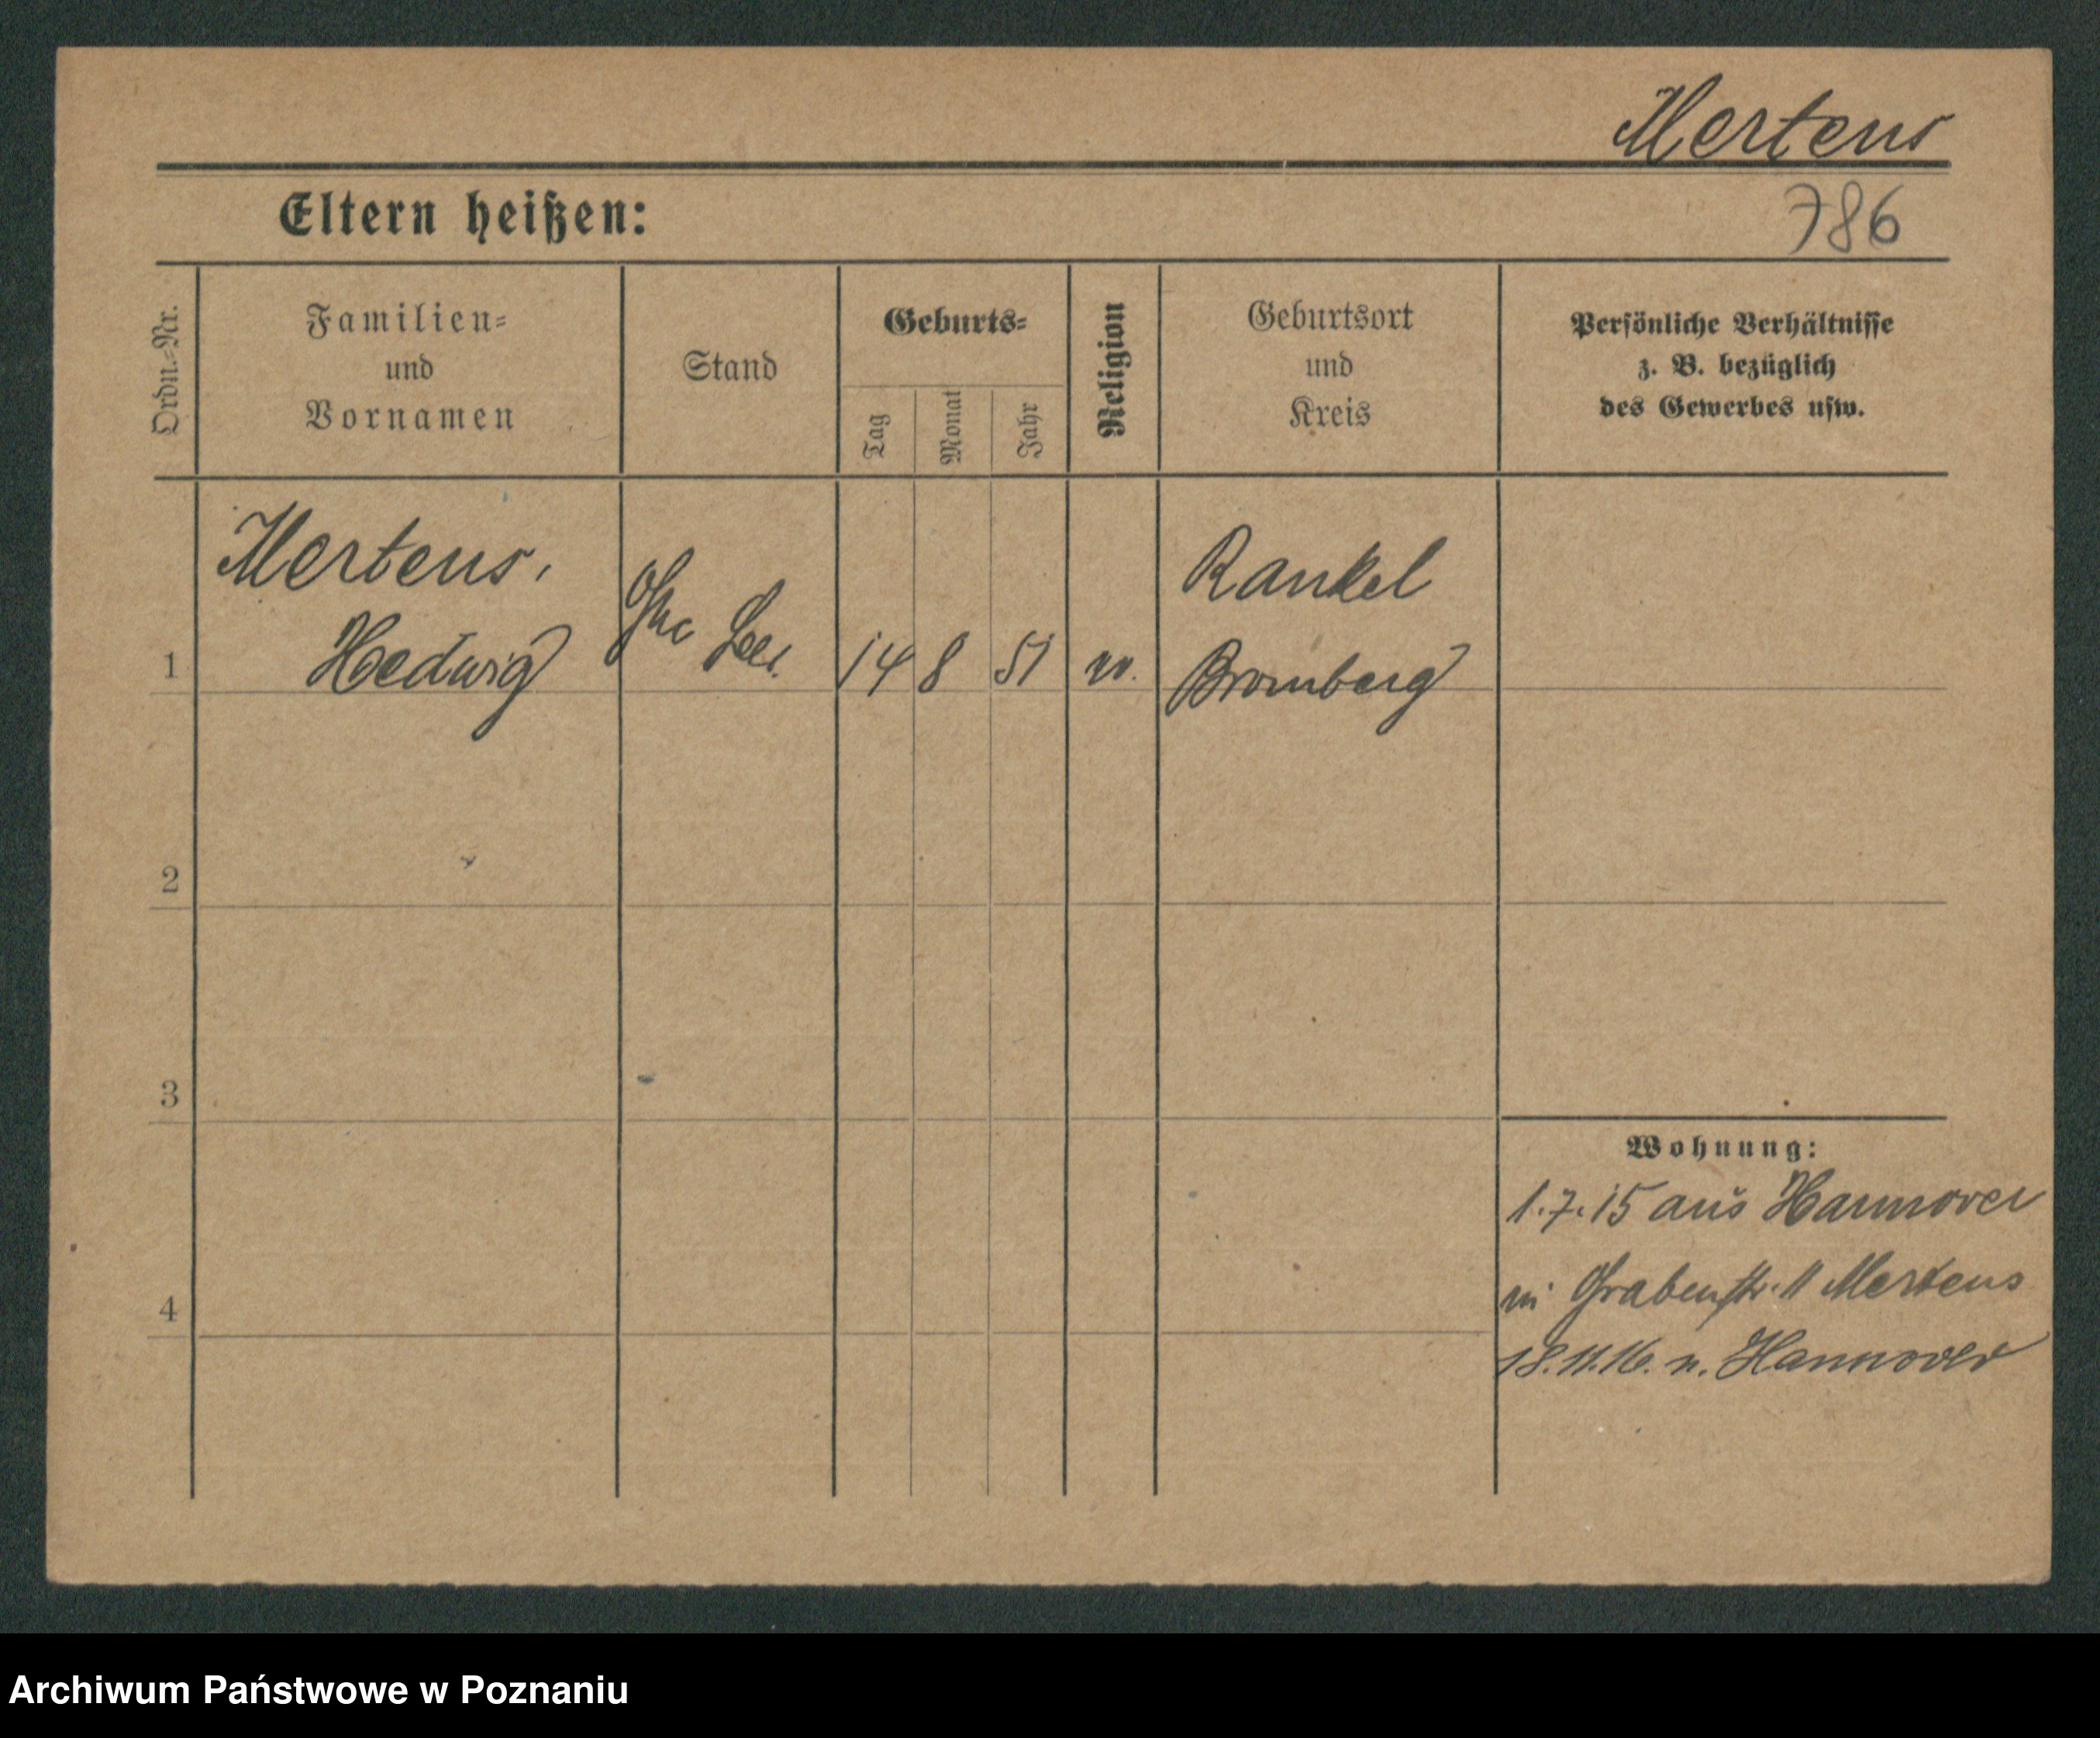 Mertens
Eltern heißen:
786
Ordn.-Nr.
Familien-
und
Vornamen
Stand
Geburts-
Tag
Monat
Jahr
Religion
Geburtsort
und
Kreis
Persönliche Verhältnisse
z. B. bezüglich
des Gewerbes usw.
Mertens,
Hedwig
14 8 51
Rankel
Bromberg
1
2
3
4
Wohnung:
1.7.15 aus Hannover
Grabenstr. 11 Mertens
18.11.16. n. Hannover
Archiwum Państwowe w Poznaniu